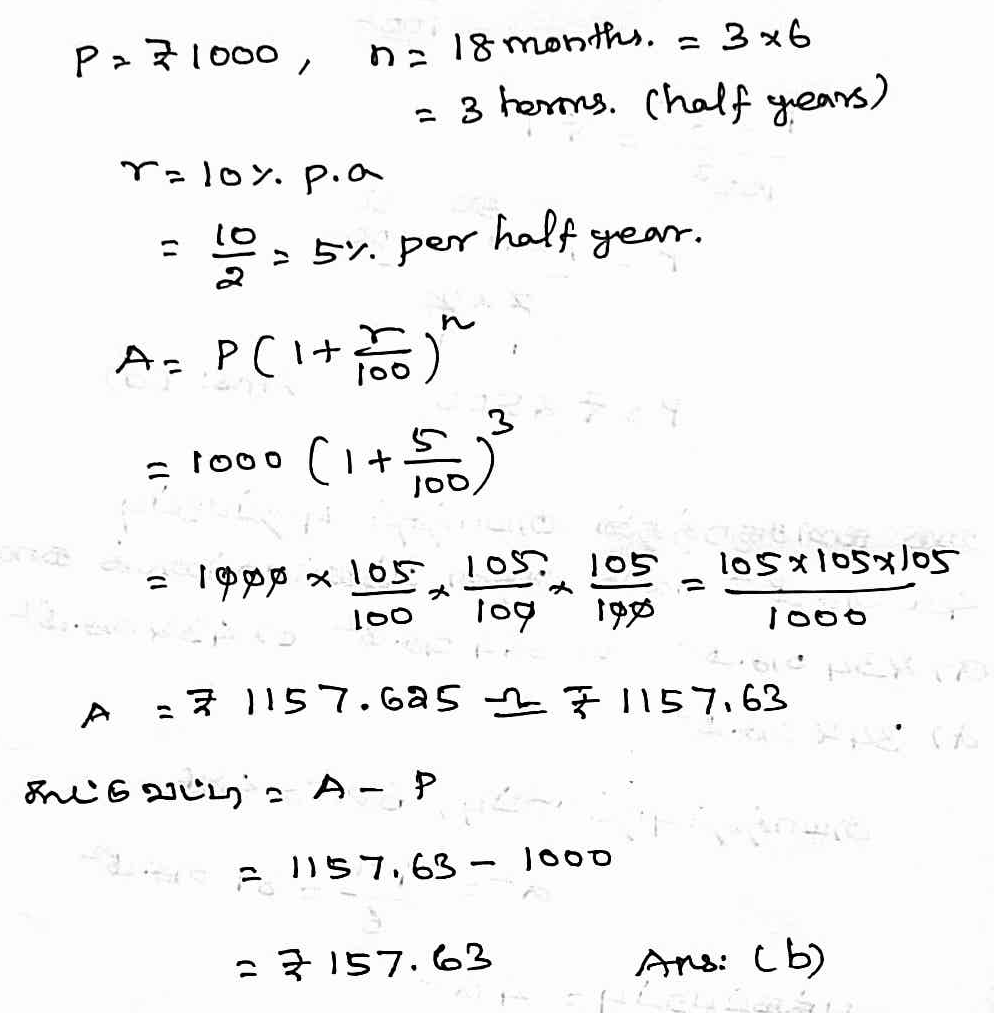 P = ₹ 1000, n = 18 months. = 3 x 6
= 3 terms. (half years)
r = 10%. p.a
= 10/2 = 5%. per half year.
A = P(1 + r/100)^n
= 1000 (1 + 5/100)^3
= 1000 x 105/100 x 105/100 x 105/100 = 105 x 105 x 105/1000
A = ₹ 1157.625 ≏ ₹ 1157.63
கூட்டு வட்டி = A - P
= 1157.63 - 1000
= ₹ 157.63 Ans: (b)